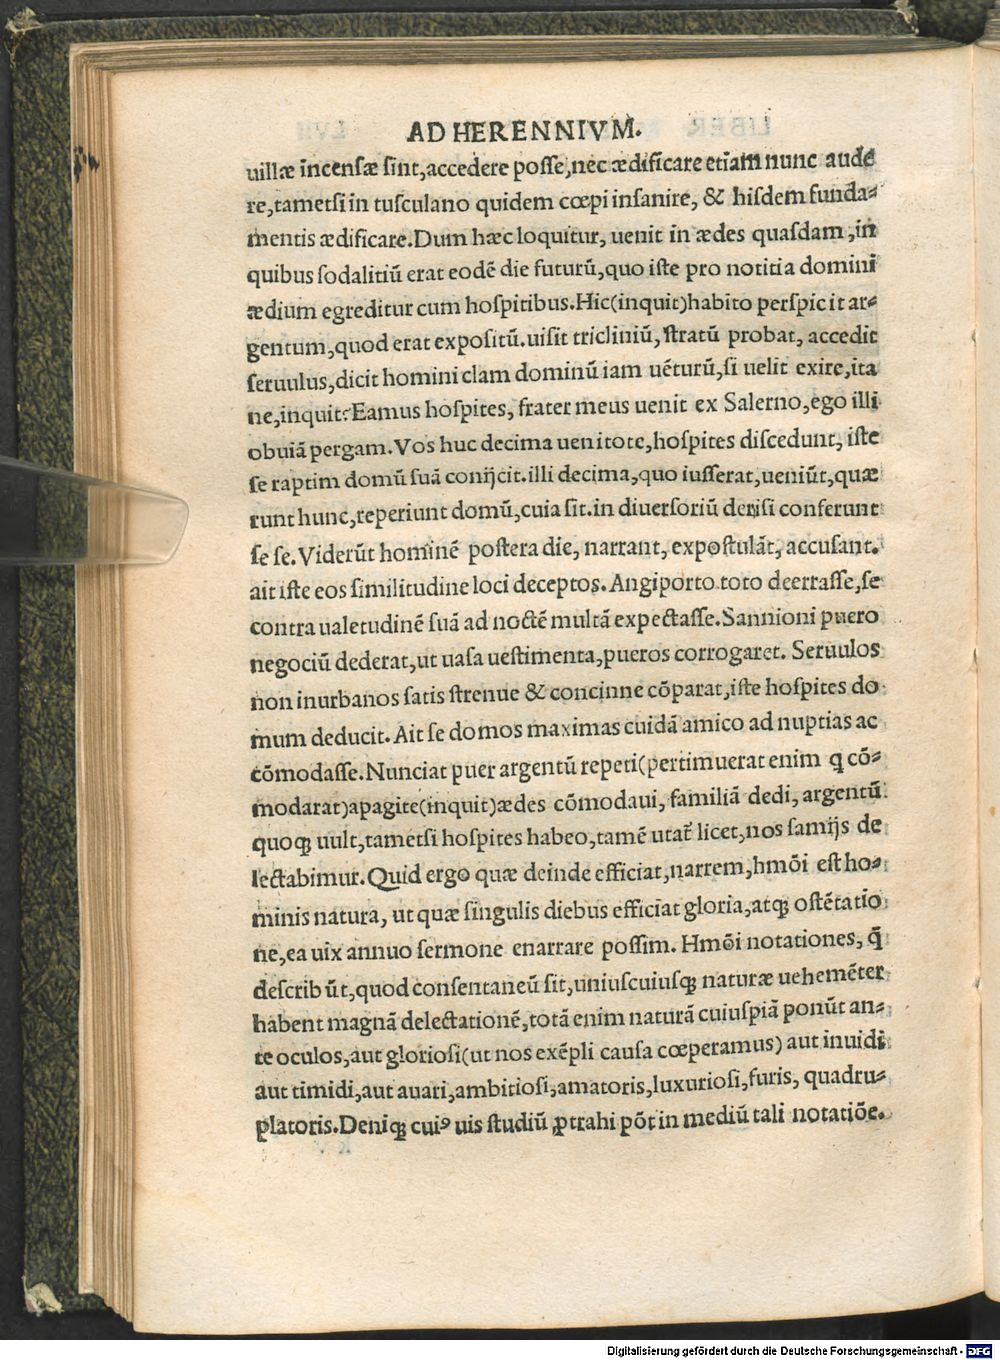 AD HERENNIVM.
uillæ incensæ sint,accedere posse,nec ædificare etiam nunc aude
re,tametsi in tusculano quidem cœpi insanire, & hisdem funda-
mentis ædificare.Dum hæc loquitur, uenit in ædes quasdam ,in
quibus sodalitiū erat eodē die futurū,quo iste pro notitia domini
ædium egreditur cum hospitibus.Hic(inquit)habito perspicit ar-
gentum,quod erat expositū.uisit tricliniū,stratū probat, accedit
seruulus,dicit homini clam dominū iam uēturū,si uelit exire,ita
ne,inquit:Eamus hospites, frater meus uenit ex Salerno,ego illi
obuiā pergam.Vos huc decima uenitote,hospites discedunt, iste
se raptim domū suā conijcit.illi decima,quo iusserat,ueniūt,quæ
runt hunc,reperiunt domū,cuia sit.in diuersoriū derisi conferunt
se se.Viderūt hominē postera die, narrant, expostulāt, accusant.
ait iste eos similitudine loci deceptos.Angiporto toto deerrasse,se
contra ualetudinē suā ad noctē multā expectasse.Sannioni puero
negociū dederat,ut uasa uestimenta,pueros corrogaret. Seruulos
non inurbanos satis strenue & concinne cōparat,iste hospites do
mum deducit.Ait se domos maximas cuidā amico ad nuptias ac
cōmodasse.Nunciat puer argentū repeti(pertimuerat enim q cō-
modarat)apagite(inquit)ædes cōmodaui, familiā dedi, argentū
quoqꝫ uult,tametsi hospites habeo,tamē utat̄ licet,nos samijs de
lectabimur.Quid ergo quæ deinde efficiat,narrem,hmōi est ho-
minis natura, ut quæ singulis diebus efficiat gloria,atqꝫ ostētatio
ne,ea uix annuo sermone enarrare possim. Hmōi notationes, q̄
describūt,quod consentaneū sit,uniuscuiusqꝫ naturæ uehemēter
habent magnā delectationē,totā enim naturā cuiuspiā ponūt an-
te oculos,aut gloriosi(ut nos exēpli causa cœperamus) aut inuidi
aut timidi,aut auari,ambitiosi,amatoris,luxuriosi,furis, quadru-
platoris.Deniqꝫ cuiꝰ uis studiū ꝓtrahi pōt in mediū tali notatiōe.
Digitalisierung gefördert durch die Deutsche Forschungsgemeinschaft - DFG